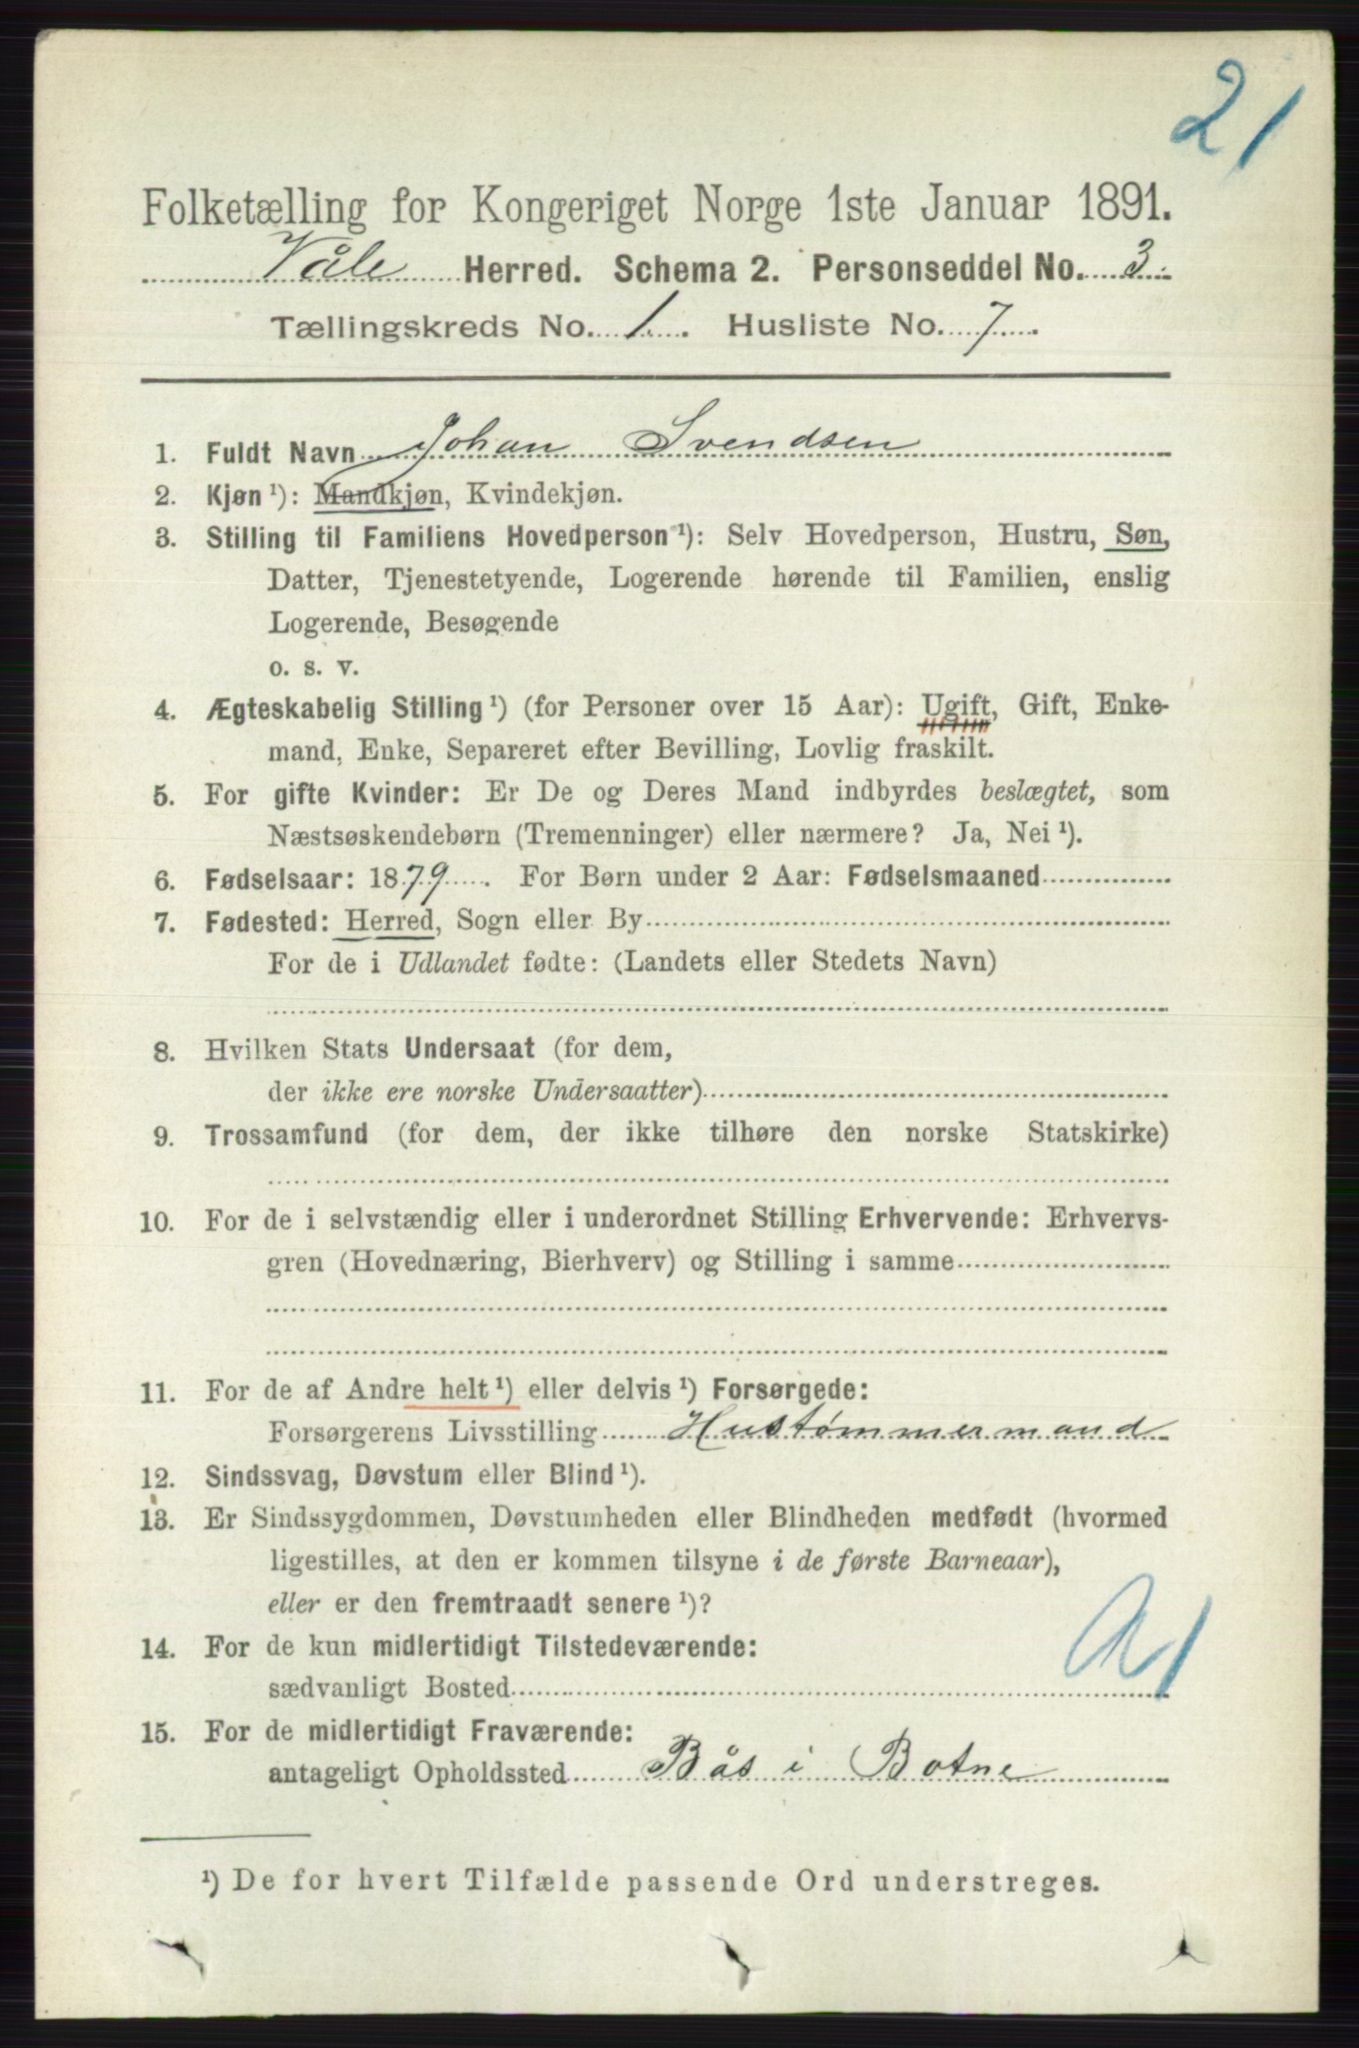 21
Folketælling for Kongeriget Norge 1ste Januar 1891.
Våle Herred. Schema 2. Personseddel No. 3
Tællingskreds No. 1. Husliste No. 7.
1. Fuldt Navn Johan Svendsen
2. Kjøn ¹): Mandkjøn, Kvindekjøn.
3. Stilling til Familiens Hovedperson ¹): Selv Hovedperson, Hustru, Søn,
Datter, Tjenestetyende, Logerende hørende til Familien, enslig
Logerende, Besøgende
o. s. v.
4. Ægteskabelig Stilling ¹) (for Personer over 15 Aar): Ugift, Gift, Enke-
mand, Enke, Separeret efter Bevilling, Lovlig fraskilt.
5. For gifte Kvinder: Er De og Deres Mand indbyrdes beslægtet, som
Næstsøskendebørn (Tremenninger) eller nærmere? Ja, Nei ¹).
6. Fødselsaar: 1879. For Børn under 2 Aar: Fødselsmaaned
7. Fødested: Herred, Sogn eller By
For de i Udlandet fødte: (Landets eller Stedets Navn)
8. Hvilken Stats Undersaat (for dem,
der ikke ere norske Undersaatter)
9. Trossamfund (for dem, der ikke tilhøre den norske Statskirke)
10. For de i selvstændig eller i underordnet Stilling Erhvervende: Erhvervs-
gren (Hovednæring, Bierhverv) og Stilling i samme
11. For de af Andre helt ¹) eller delvis ¹) Forsørgede:
Forsørgerens Livsstilling Hustømmermand
12. Sindssvag, Døvstum eller Blind ¹).
13. Er Sindssygdommen, Døvstumheden eller Blindheden medfødt (hvormed
ligestilles, at den er kommen tilsyne i de første Barneaar),
eller er den fremtraadt senere ¹)?
14. For de kun midlertidigt Tilstedeværende:
sædvanligt Bosted
15. For de midlertidigt Fraværende:
antageligt Opholdssted Bås i Botne
¹) De for hvert Tilfælde passende Ord understreges.